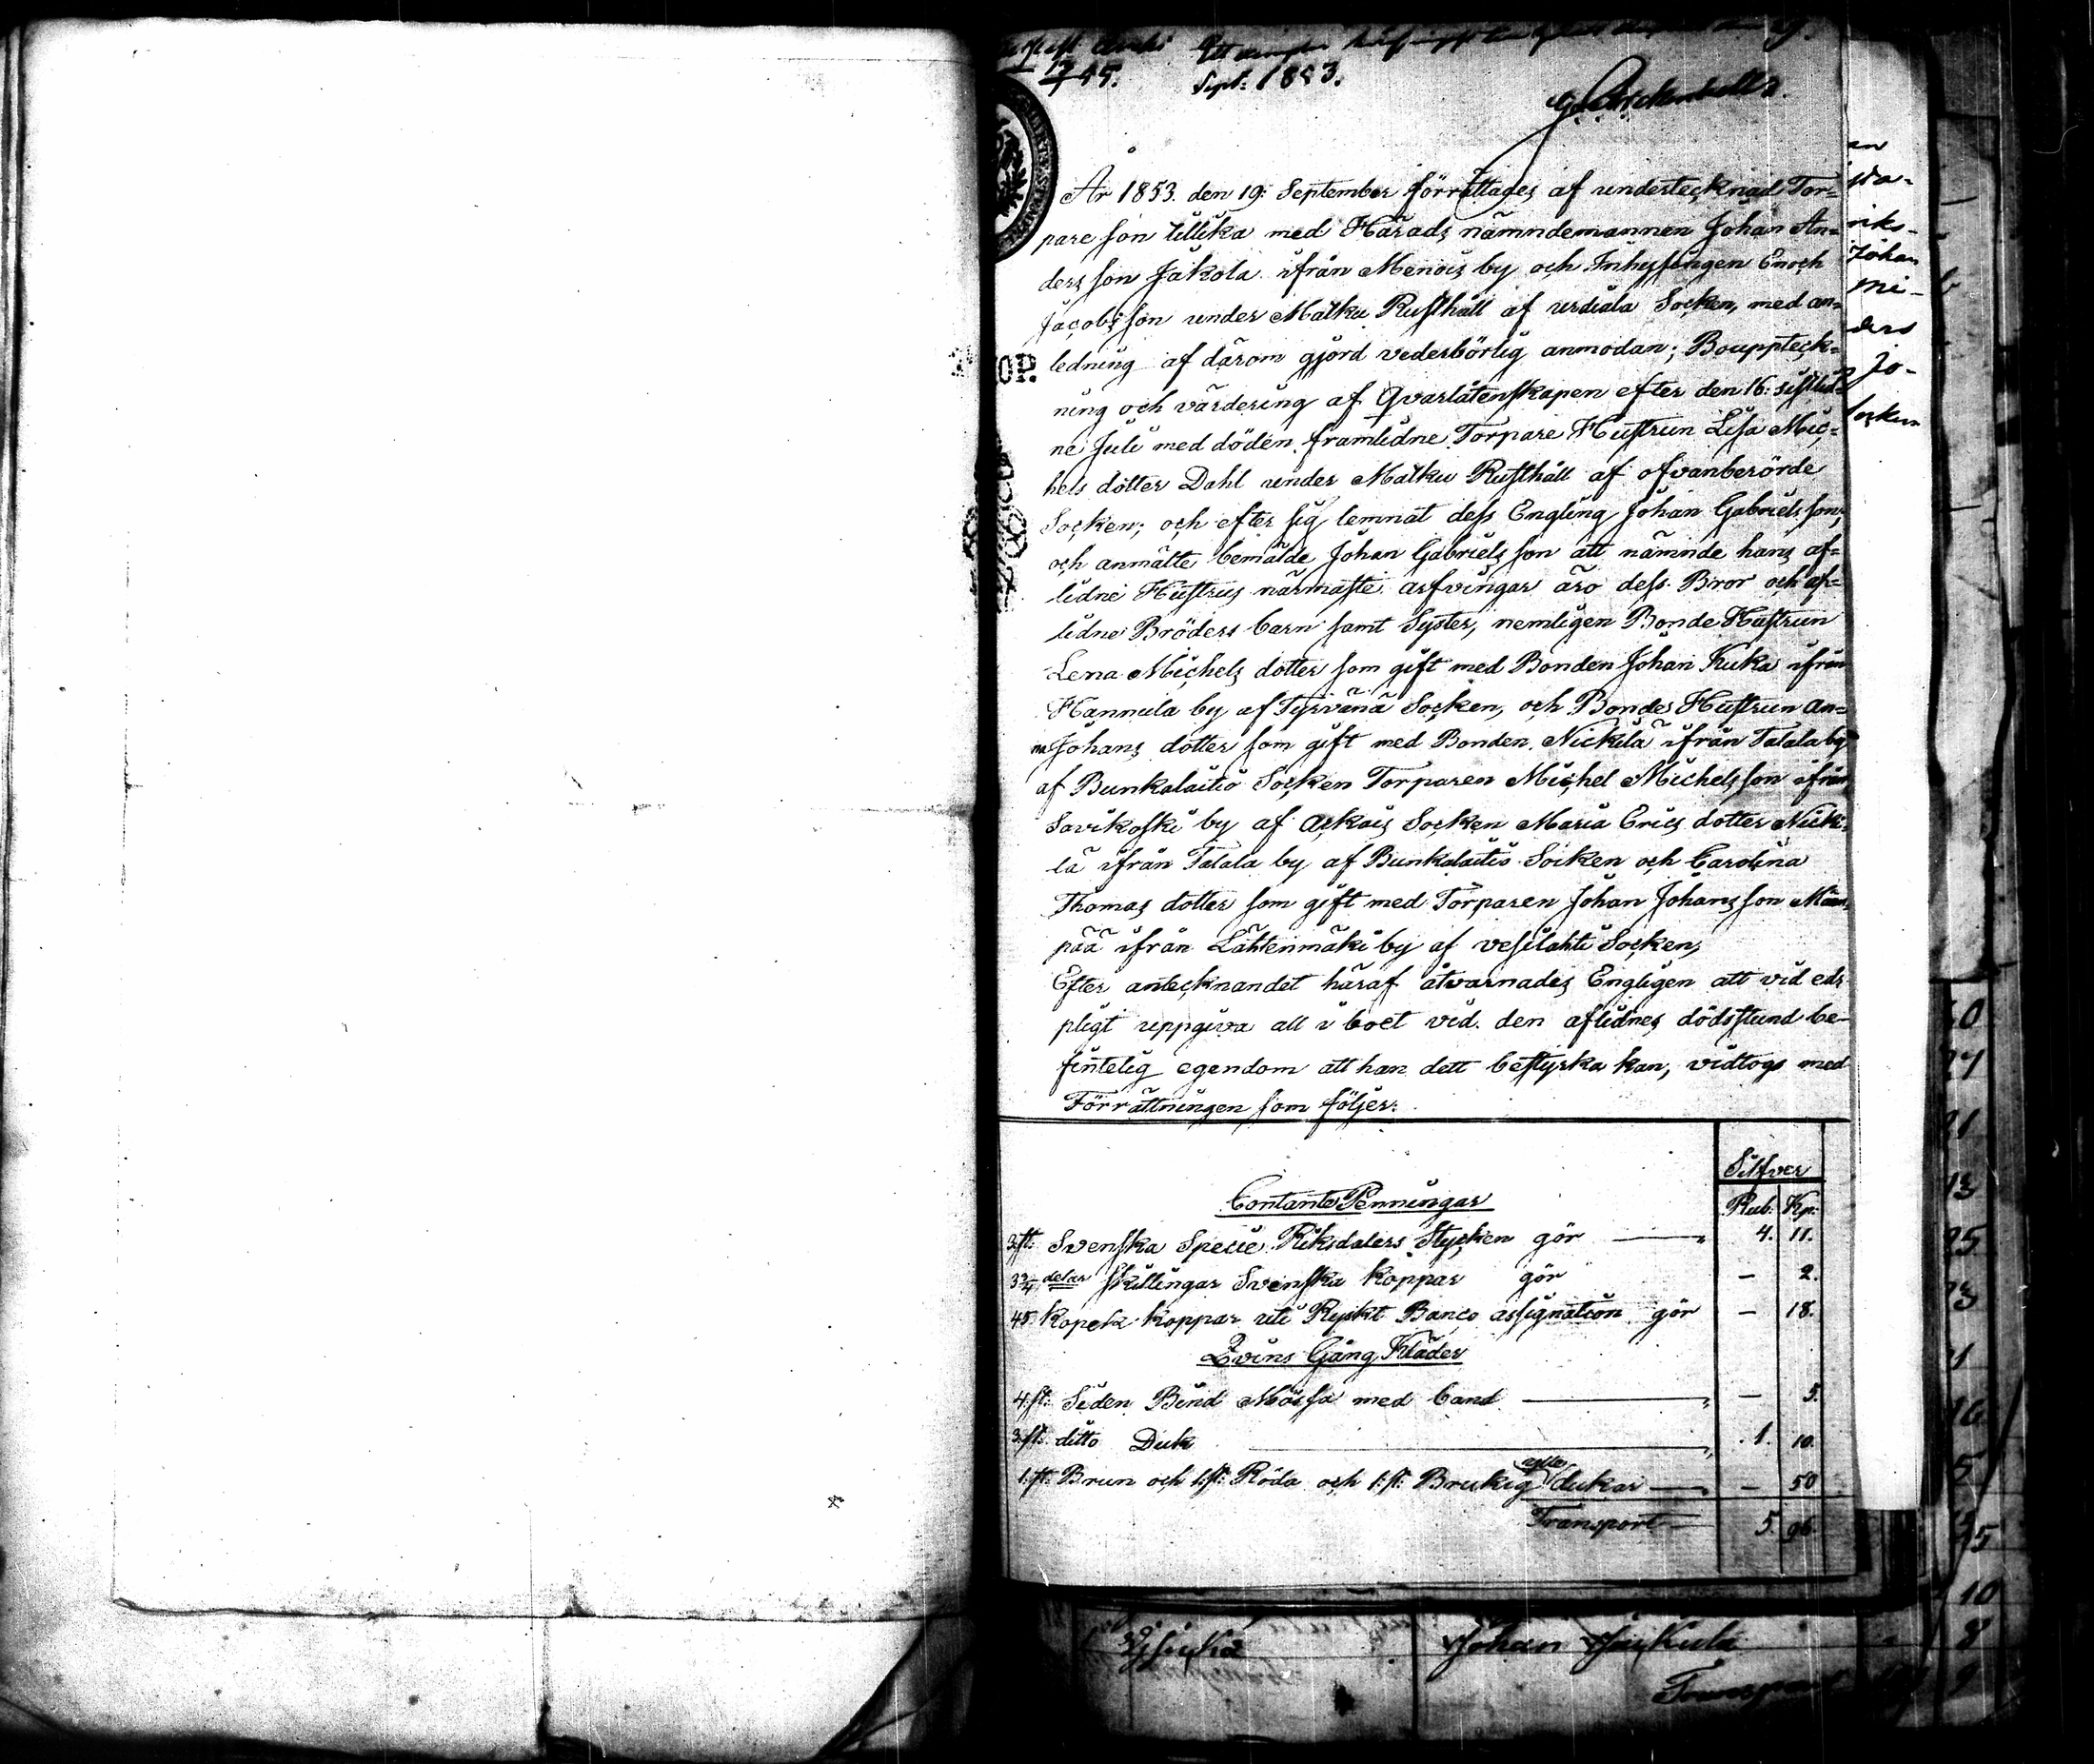 17/9 45.
Sept: 1853.
År 1853. den 19: September förrättades af undertecknad Tor=
pare son tillika med Härads nämndemannen Johan An=
ders son Jakola ifrån Menois by och Inhysingen Enoch
Jacobs son under Matku Rusthåll af urdiala Socken, med an=
ledning af därom gjord vederbörlig anmodan; Bouppteck=
ning och värdering af Qvarlåtenskapen efter den 16: sistlid=
ne Juli med döden framlidne Torpare Hustrun Lisa Mic=
hels dotter Dahl under Matku Rusthåll af ofvanberörde
Socken; och efter sig lemnat dess Engling Johan Gabriels son,
och anmälte bemälde Johan Gabriels son att nämnde hans af=
lidne Hustrus närmaste arfvingar äro dess Bror och af=
lidne Bröders barn samt Syster, nemligen Bonde Hustrun
Lena Michels dotter som gift med Bonden Johan Kuka ifrån
Hannula by af Tyrvänä Socken, och Bondes Hustrun An=
na Johans dotter som gift med Bonden Nickilä ifrån Tatala by
af Bunkalaitio Socken Torparen Michel Michels son ifrån
Savikoski by af Ackais Socken Maria Erics dotter Nicki=
lä ifrån Tatala by af Bunkalaitio Socken och Carolina
Thomas dotter som gift med Torparen Johan Johans son Mäen=
pää ifrån Lähtenmäki by af vesilahti Socken,
Efter antecknandet häraf åtvarnades Engligen att vid eds
pligt uppgiva all i boet vid den aflidnes dödsstund be-
fintelig egendom att han dett bestyrka kan, vidtogs med
Förrättningen som följer:
Silfver
Contante Penningar
Rub. Kp:
3.st: Svenska Specie Riksdalers Stycken gör 4. 11.
3 3/4 delar Skillingar Svenska koppar gör — 2.
45. kopek koppar uti Ryskt Banco assignation gör — 18.
Qvins Gång Kläder
4.st: Siden Bind Mössa med band — 5.
3.st: ditto Duk 1. 10.
1.st: Brun och 1.st: Röda och 1.st: Brukig dukar — 50
Transport 5. 96.
an
sta-
riks-
Johan
mi-
ders
Jo-
socken
Johan
Transport